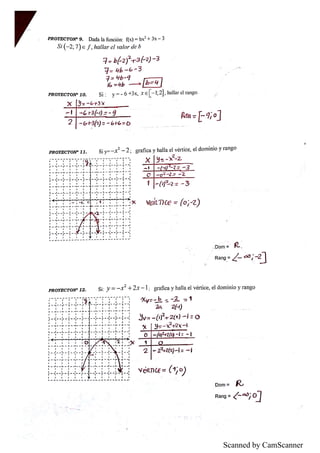 PROYECTOR Nº 9. Dada la función: f(x) = bx² + 3x – 3
Si (–2, 7) ∈ f, hallar el valor de b
7 = b(-2)²+3(-2)-3
7 = 4b -6 -3
7 = 4b-9
16 = 4b → b=4
PROYECTOR Nº 10. Si : y = - 6 +3x, x ∈ [-1,2], hallar el rango
x y = -6+3x
-1 -6+3(-1) = -9
2 -6+3(2) = -6+6=0
Rang = [-9; 0]
PROYECTOR Nº 11. Si y= -x² - 2; grafica y halla el vértice, el dominio y rango
x y = -x²-2
-1 -(-1)²-2 = -3
0 -0²-2 = -2
1 -(1)²-2 = -3
VÉRTICE = (0;-2)
Dom = R
Rang = <-∞; -2]
PROYECTOR Nº 12. Si: y = -x² + 2x - 1, grafica y halla el vértice, el dominio y rango
Xv = -b/2a = -2/2(-1) = 1
Yv = -(1)²+2(1) -1 = 0
x y = -x²+2x-1
0 -(0)²+2(0)-1 = -1
1 0
2 -2²+2(2)-1 = -1
VÉRTICE = (1; 0)
Dom = R
Rang = <-∞; 0]
Scanned by CamScanner